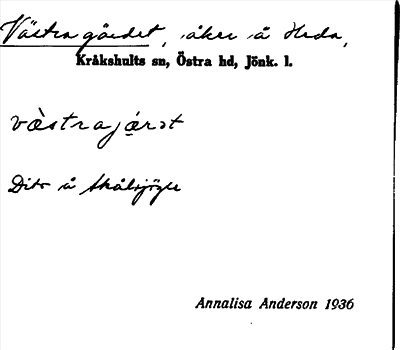 Västra gärdet, åker å Heda,
Kråkshults sn, Östra hd, Jönk. l.
västrajärət
Dito å Skälsjögle
Annalisa Anderson 1936